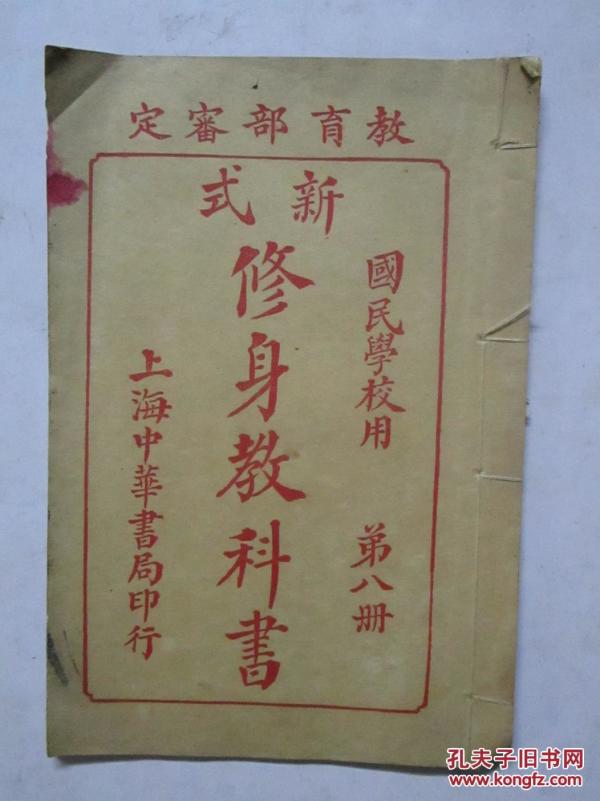 教育部審定
新式
修身教科書
國民學校用
第八冊
上海中華書局印行
孔夫子旧书网
www.kongfz.com